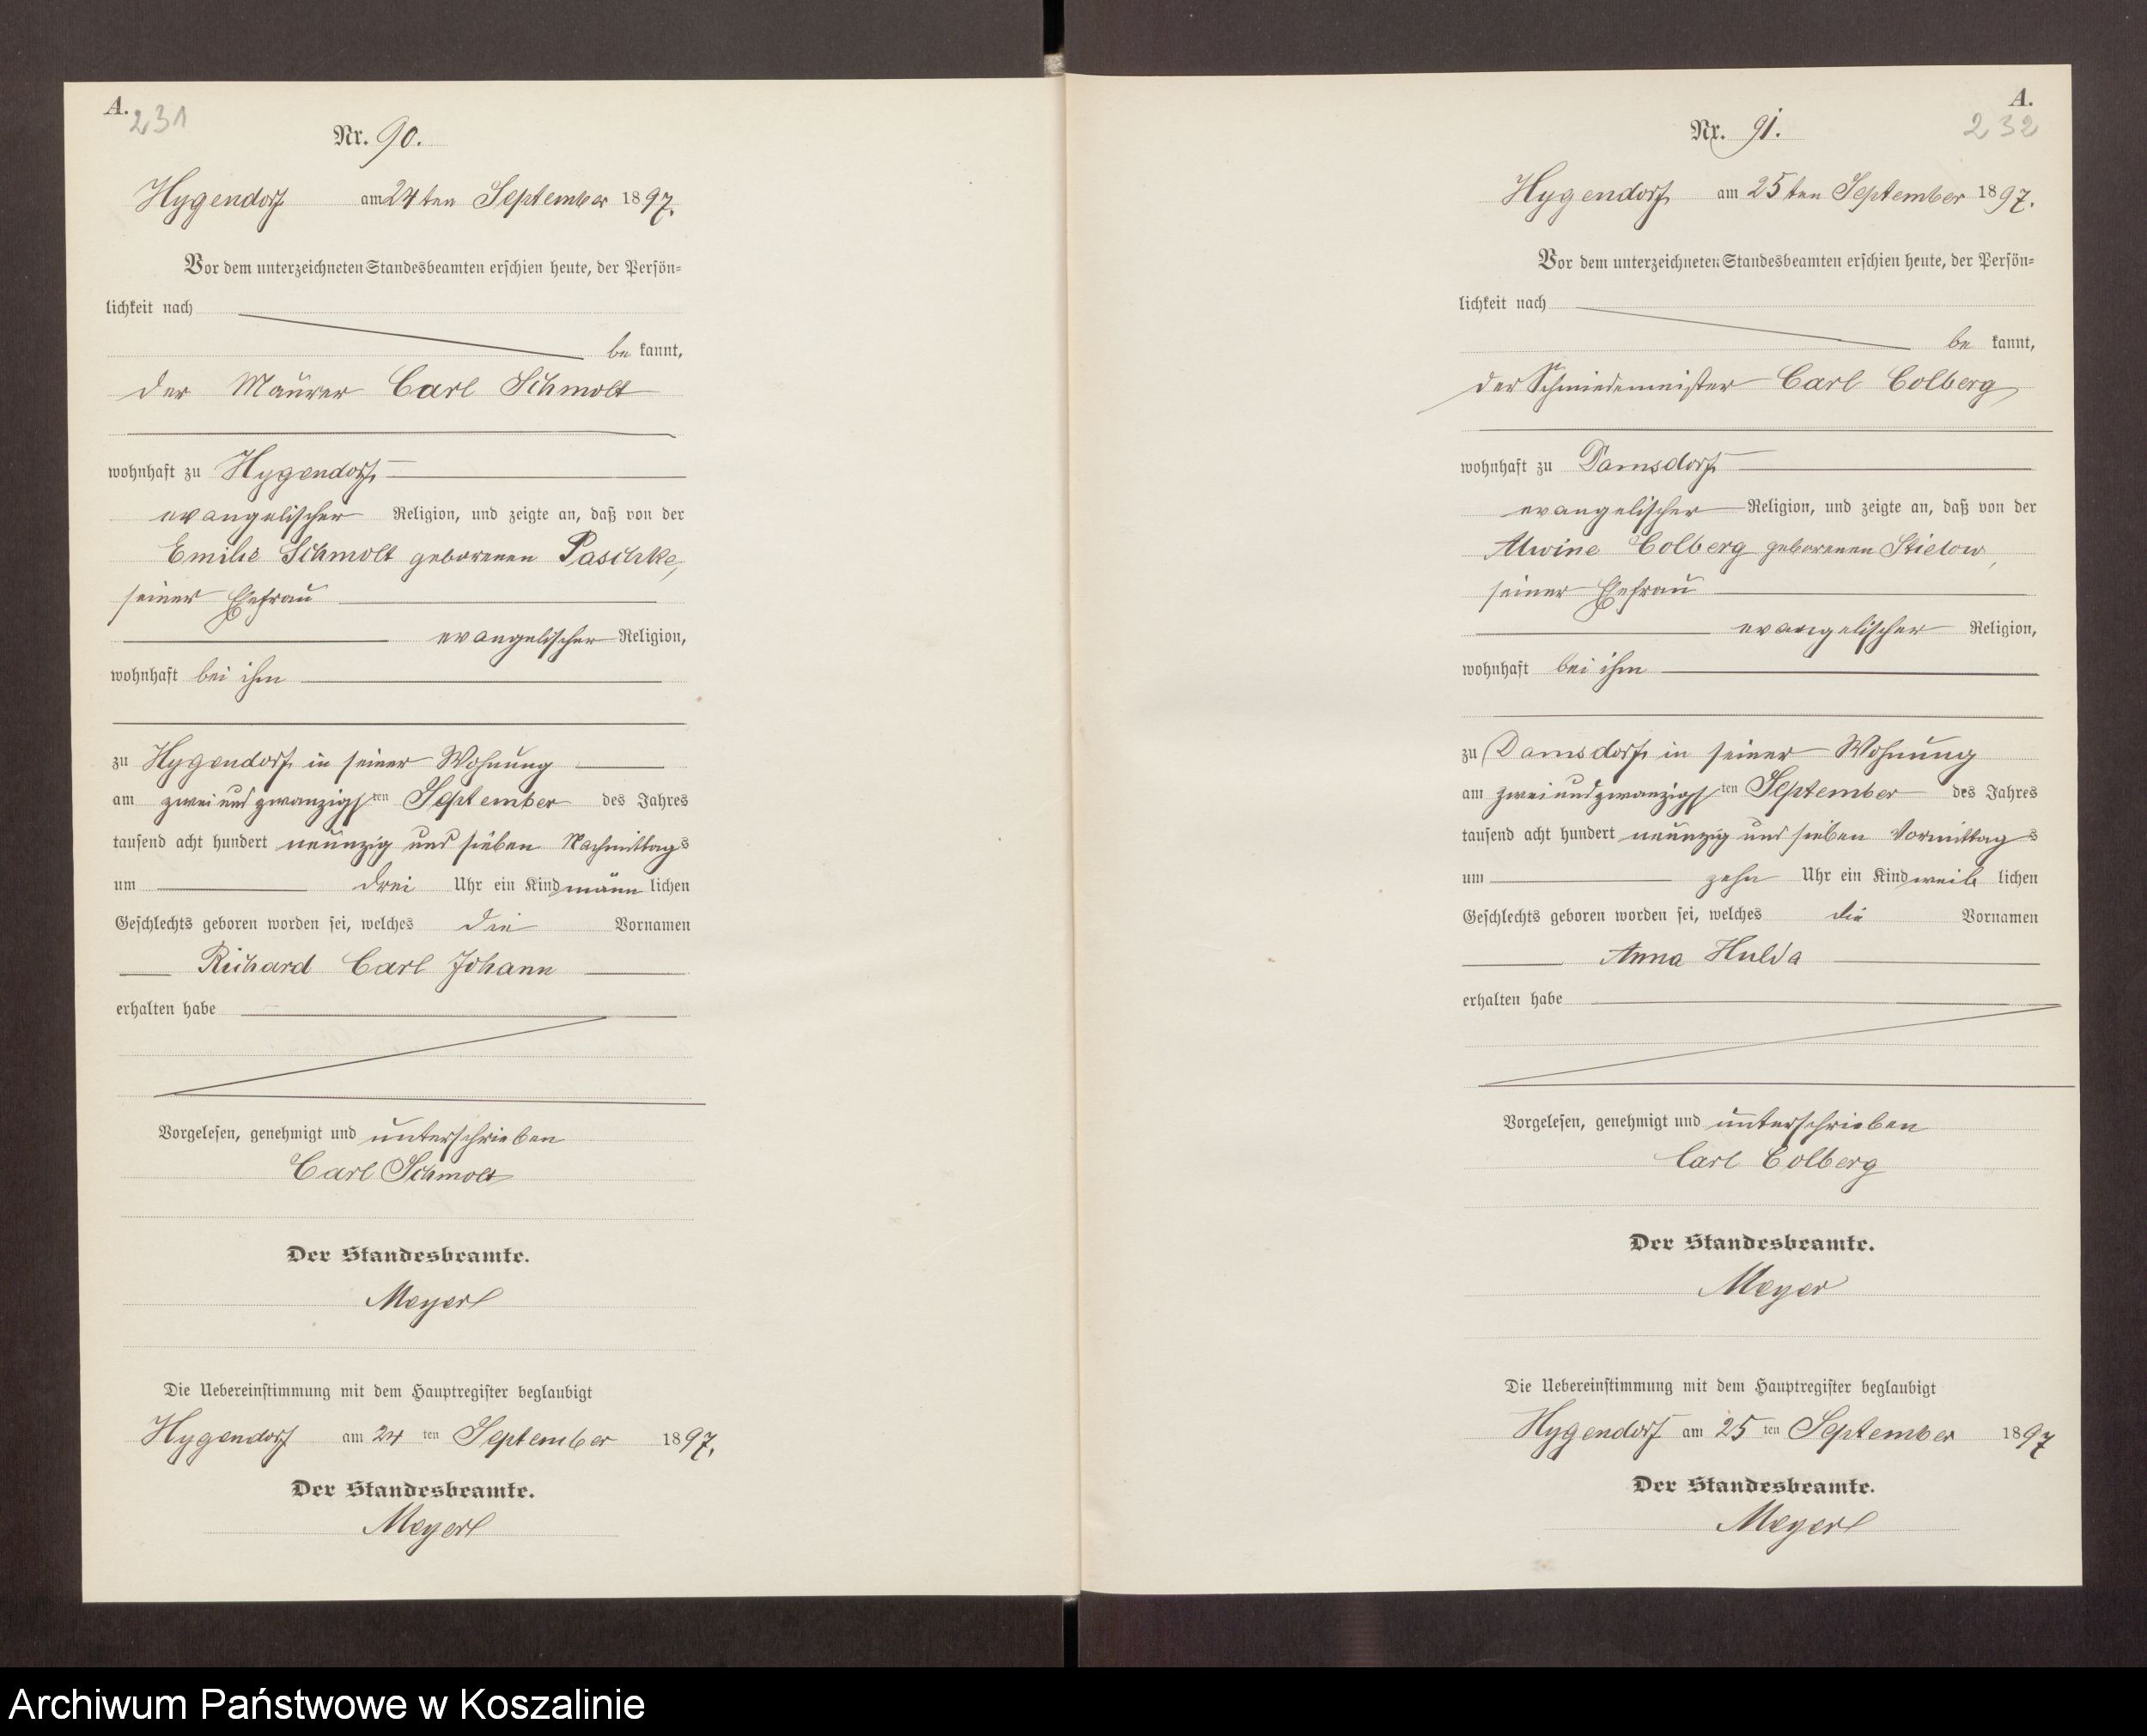 A.
231
Nr. 90.
Hygendorf am 24ten September 1897.
Vor dem unterzeichneten Standesbeamten erschien heute, der Persön-
lichkeit nach
bekannt,
der Maurer Carl Schmolt
wohnhaft zu Hygendorf
evangelischer Religion, und zeigte an, daß von der
Emilie Schmolt geborenen Paschke,
seiner Ehefrau
evangelischer Religion,
wohnhaft bei ihm
zu Hygendorf in seiner Wohnung
am zweiundzwanzigsten September des Jahres
tausend acht hundert neunzig und sieben Nachmittags
um drei Uhr ein Kind männlichen
Geschlechts geboren worden sei, welches die Vornamen
Richard Carl Johann
erhalten habe
Vorgelesen, genehmigt und unterschrieben
Carl Schmolt
Der Standesbeamte.
Meyer
Die Uebereinstimmung mit dem Hauptregister beglaubigt
Hygendorf am 24ten September 1897.
Der Standesbeamte.
Meyer
A.
232
Nr. 91.
Hygendorf am 25ten September 1897.
Vor dem unterzeichneten Standesbeamten erschien heute, der Persön-
lichkeit nach
bekannt,
der Schmiedemeister Carl Colberg,
wohnhaft zu Damsdorf
evangelischer Religion, und zeigte an, daß von der
Alwine Colberg geborenen Stielow,
seiner Ehefrau
evangelischer Religion,
wohnhaft bei ihm
zu Damsdorf in seiner Wohnung
am zweiundzwanzigsten September des Jahres
tausend acht hundert neunzig und sieben Vormittags
um zehn Uhr ein Kind weiblichen
Geschlechts geboren worden sei, welches die Vornamen
Anna Hulda
erhalten habe
Vorgelesen, genehmigt und unterschrieben
Carl Colberg
Der Standesbeamte.
Meyer
Die Uebereinstimmung mit dem Hauptregister beglaubigt
Hygendorf am 25ten September 1897
Der Standesbeamte.
Meyer
Archiwum Państwowe w Koszalinie